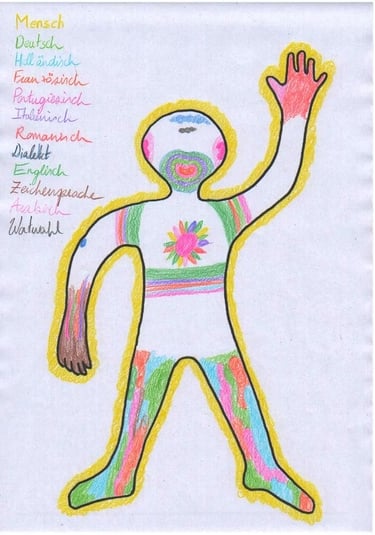 Mensch
Deutsch
Holländisch
Französisch
Portugiesisch
Italienisch
Romanisch
Dialekt
Englisch
Zeichensprache
Arabisch